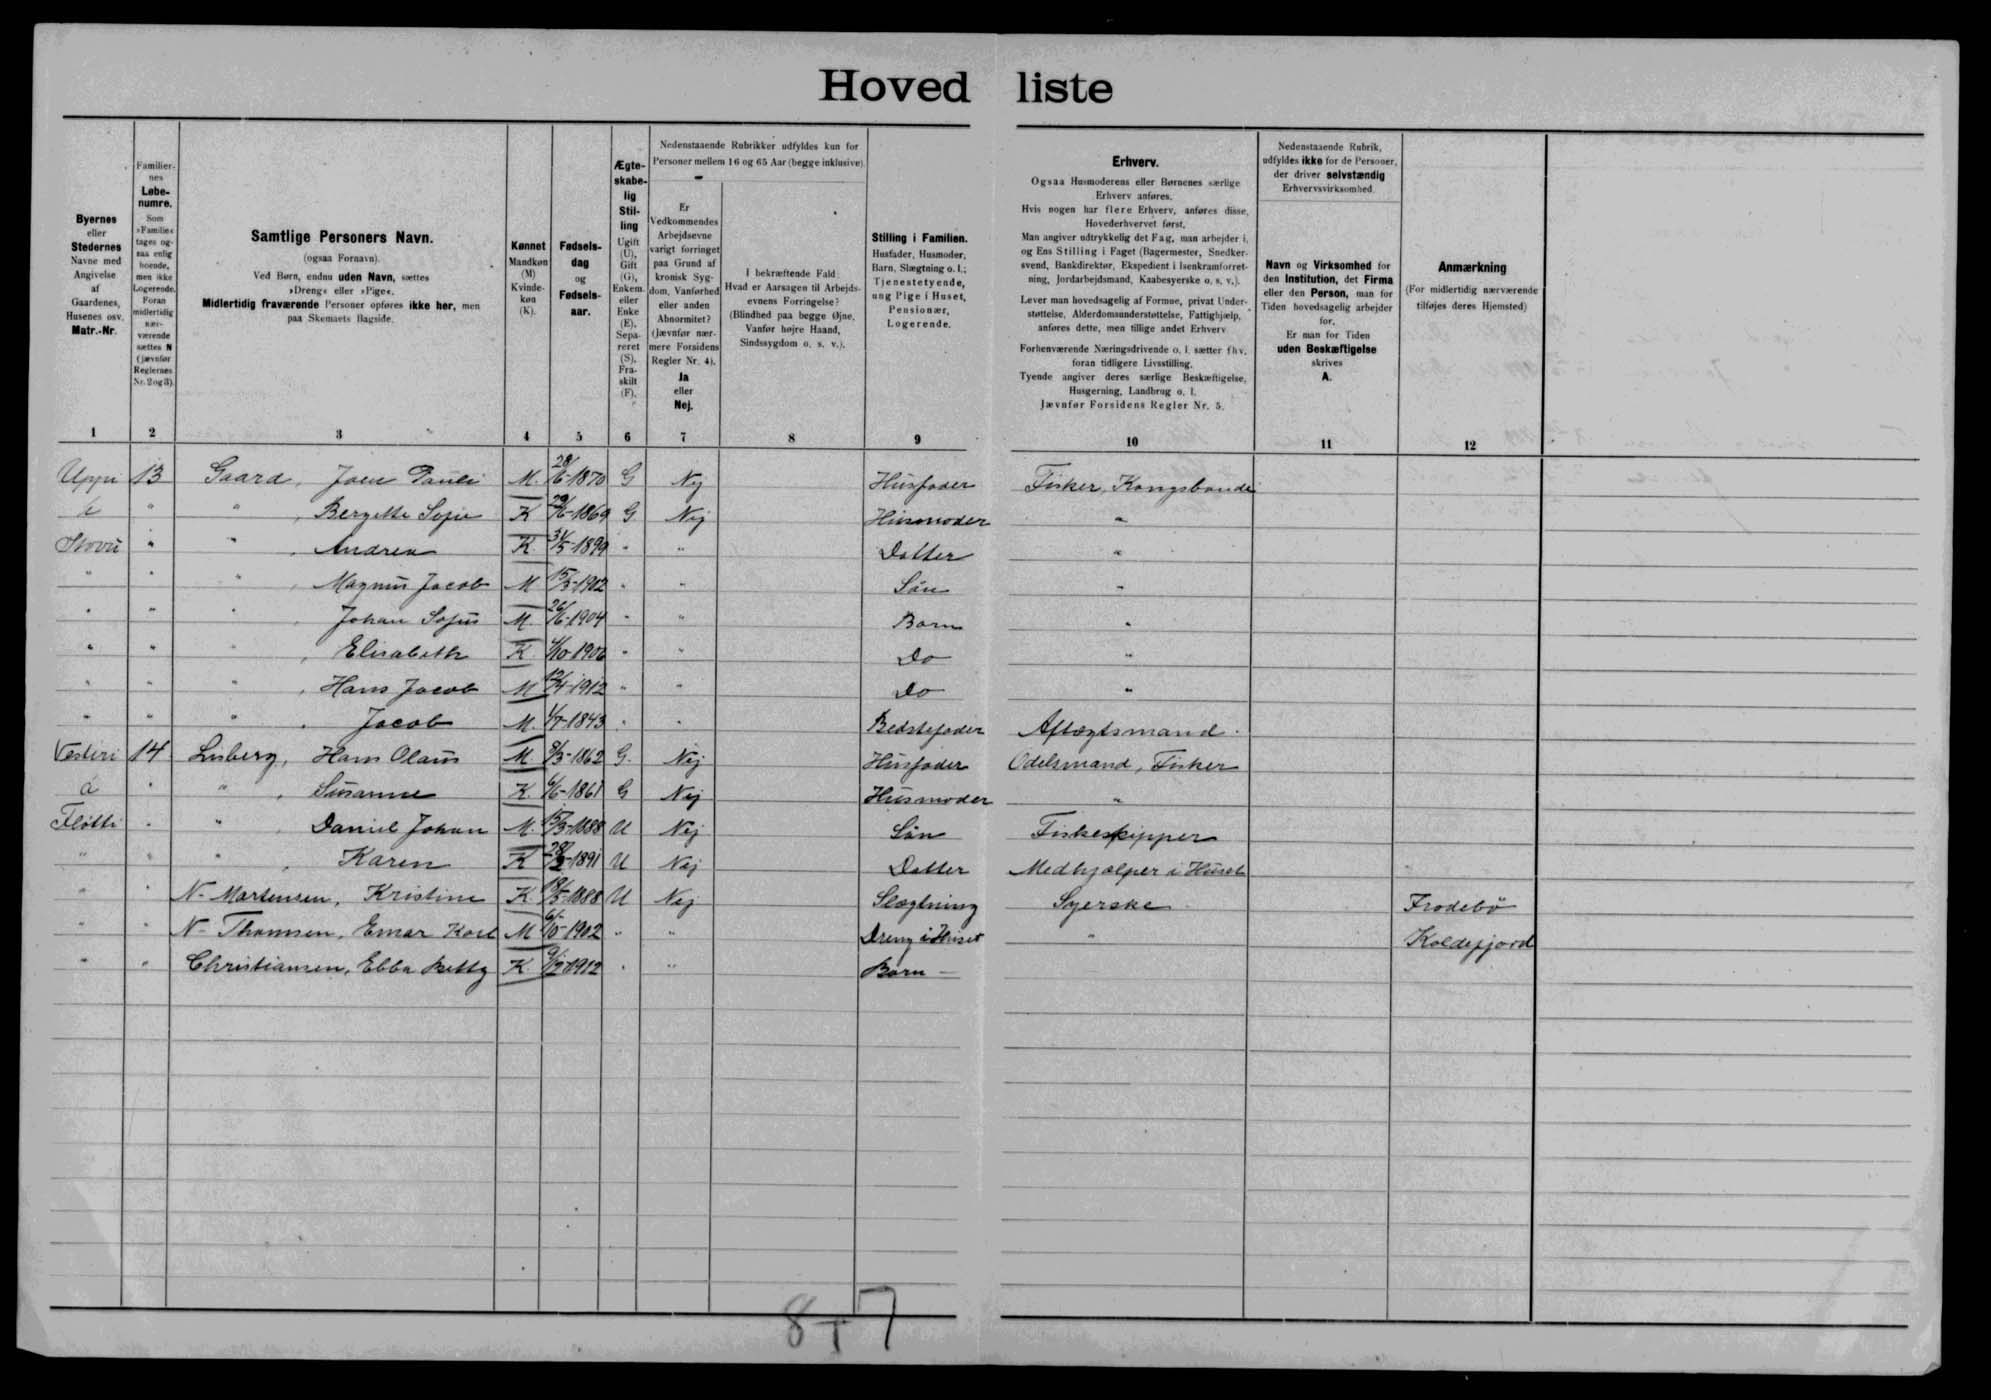 Hovedliste
Byernes eller Stedernes Navne med Angivelse af Gaardenes, Husenes osv. Matr.-Nr.
Familiernes Løbenumre. Som »Familie« tages ogsaa enlig boende, men ikke Logerende. Foran midlertidig nærværende sættes N (jævnfør Reglernes Nr. 2 og 3).
Samtlige Personers Navn. (ogsaa Fornavn). Ved Børn, endnu uden Navn, sættes »Dreng« eller »Pige«. Midlertidig fraværende Personer opføres ikke her, men paa Skemaets Bagside.
Kønnet Mandkøn (M) Kvindekøn (K).
Fødselsdag og Fødselsaar.
Ægteskabelig Stilling Ugift (U), Gift (G), Enkem. eller Enke (E), Separeret (S), Fraskilt (F).
Nedenstaaende Rubrikker udfyldes kun for Personer mellem 16 og 65 Aar (begge inklusive).
Er Vedkommendes Arbejdsevne varigt forringet paa Grund af kronisk Sygdom, Vanførhed eller anden Abnormitet? (Jævnfør nærmere Forsidens Regler Nr. 4). Ja eller Nej.
I bekræftende Fald: Hvad er Aarsagen til Arbejdsevnens Forringelse? (Blindhed paa begge Øjne, Vanfør højre Haand, Sindssygdom o. s. v.).
Stilling i Familien. Husfader, Husmoder, Barn, Slægtning o. l.; Tjenestetyende, ung Pige i Huset, Pensionær, Logerende.
Erhverv.
Ogsaa Husmoderens eller Børnenes særlige Erhverv anføres.
Hvis nogen har flere Erhverv, anføres disse, Hovederhvervet først.
Man angiver udtrykkelig det Fag, man arbejder i, og Ens Stilling i Faget (Bagermester, Snedkersvend, Bankdirektør, Ekspedient i Isenkramforretning, Jordarbejdsmand, Kaabesyerske o. s. v.).
Lever man hovedsagelig af Formue, privat Understøttelse, Alderdomsunderstøttelse, Fattighjælp, anføres dette, men tillige andet Erhverv
Forhenværende Næringsdrivende o. l. sætter fhv. foran tidligere Livsstilling.
Tyende angiver deres særlige Beskæftigelse, Husgerning, Landbrug o. l.
Jævnfør Forsidens Regler Nr. 5.
Nedenstaaende Rubrik, udfyldes ikke for de Personer, der driver selvstændig Erhvervsvirksomhed.
Navn og Virksomhed for den Institution, det Firma eller den Person, man for Tiden hovedsagelig arbejder for.
Er man for Tiden uden Beskæftigelse skrives A.
Anmærkning (For midlertidig nærværende tilføjes deres Hjemsted)
1 2 3 4 5 6 7 8 9 10 11 12
Uppi 13 Gaard, Joen Pauli M. 28/6-1870 G Nej Husfader Fisker, Kongsbonde
í " " , Bergitte Sofie K 29/6-1869 G Nej Husmoder "
Stovu " " , Andrea K 31/5-1899 " " Datter "
" " " , Magnus Jacob M 15/3-1902 " " Søn "
" " " , Johan Sofus M. 26/6-1904 " " Barn "
" " " , Elisabeth K /10-1906 " " Do "
" " " , Hans Jacob M 12/4-1912 " " Do "
" " " , Jacob M. /7-1843 " " Bedstefader Aftægtsmand.
Vesteri 14 Lisberg, Hans Olaus M. 8/3-1862 G. Nej Husfader Odelsmand, Fisker
á " " , Susanne K. 6/6-1861 G Nej Husmoder "
Fløtti " " , Daniel Johan M. 15/3-1888 U Nej Søn Fiskeskipper
" " " , Karen K 28/2-1891 U Nej Datter Medhjælper i Huset
" " N- Mortensen, Kristine K 18/5-1888 U Nej Slægtning Syerske Frodebø
" " N- Thomsen, Emar Karl M 6/10-1902 " " Dreng i Huset " Koldefjord
" " Christiansen, Ebba Betty K. 9/12-1912 " " Barn -
8+7